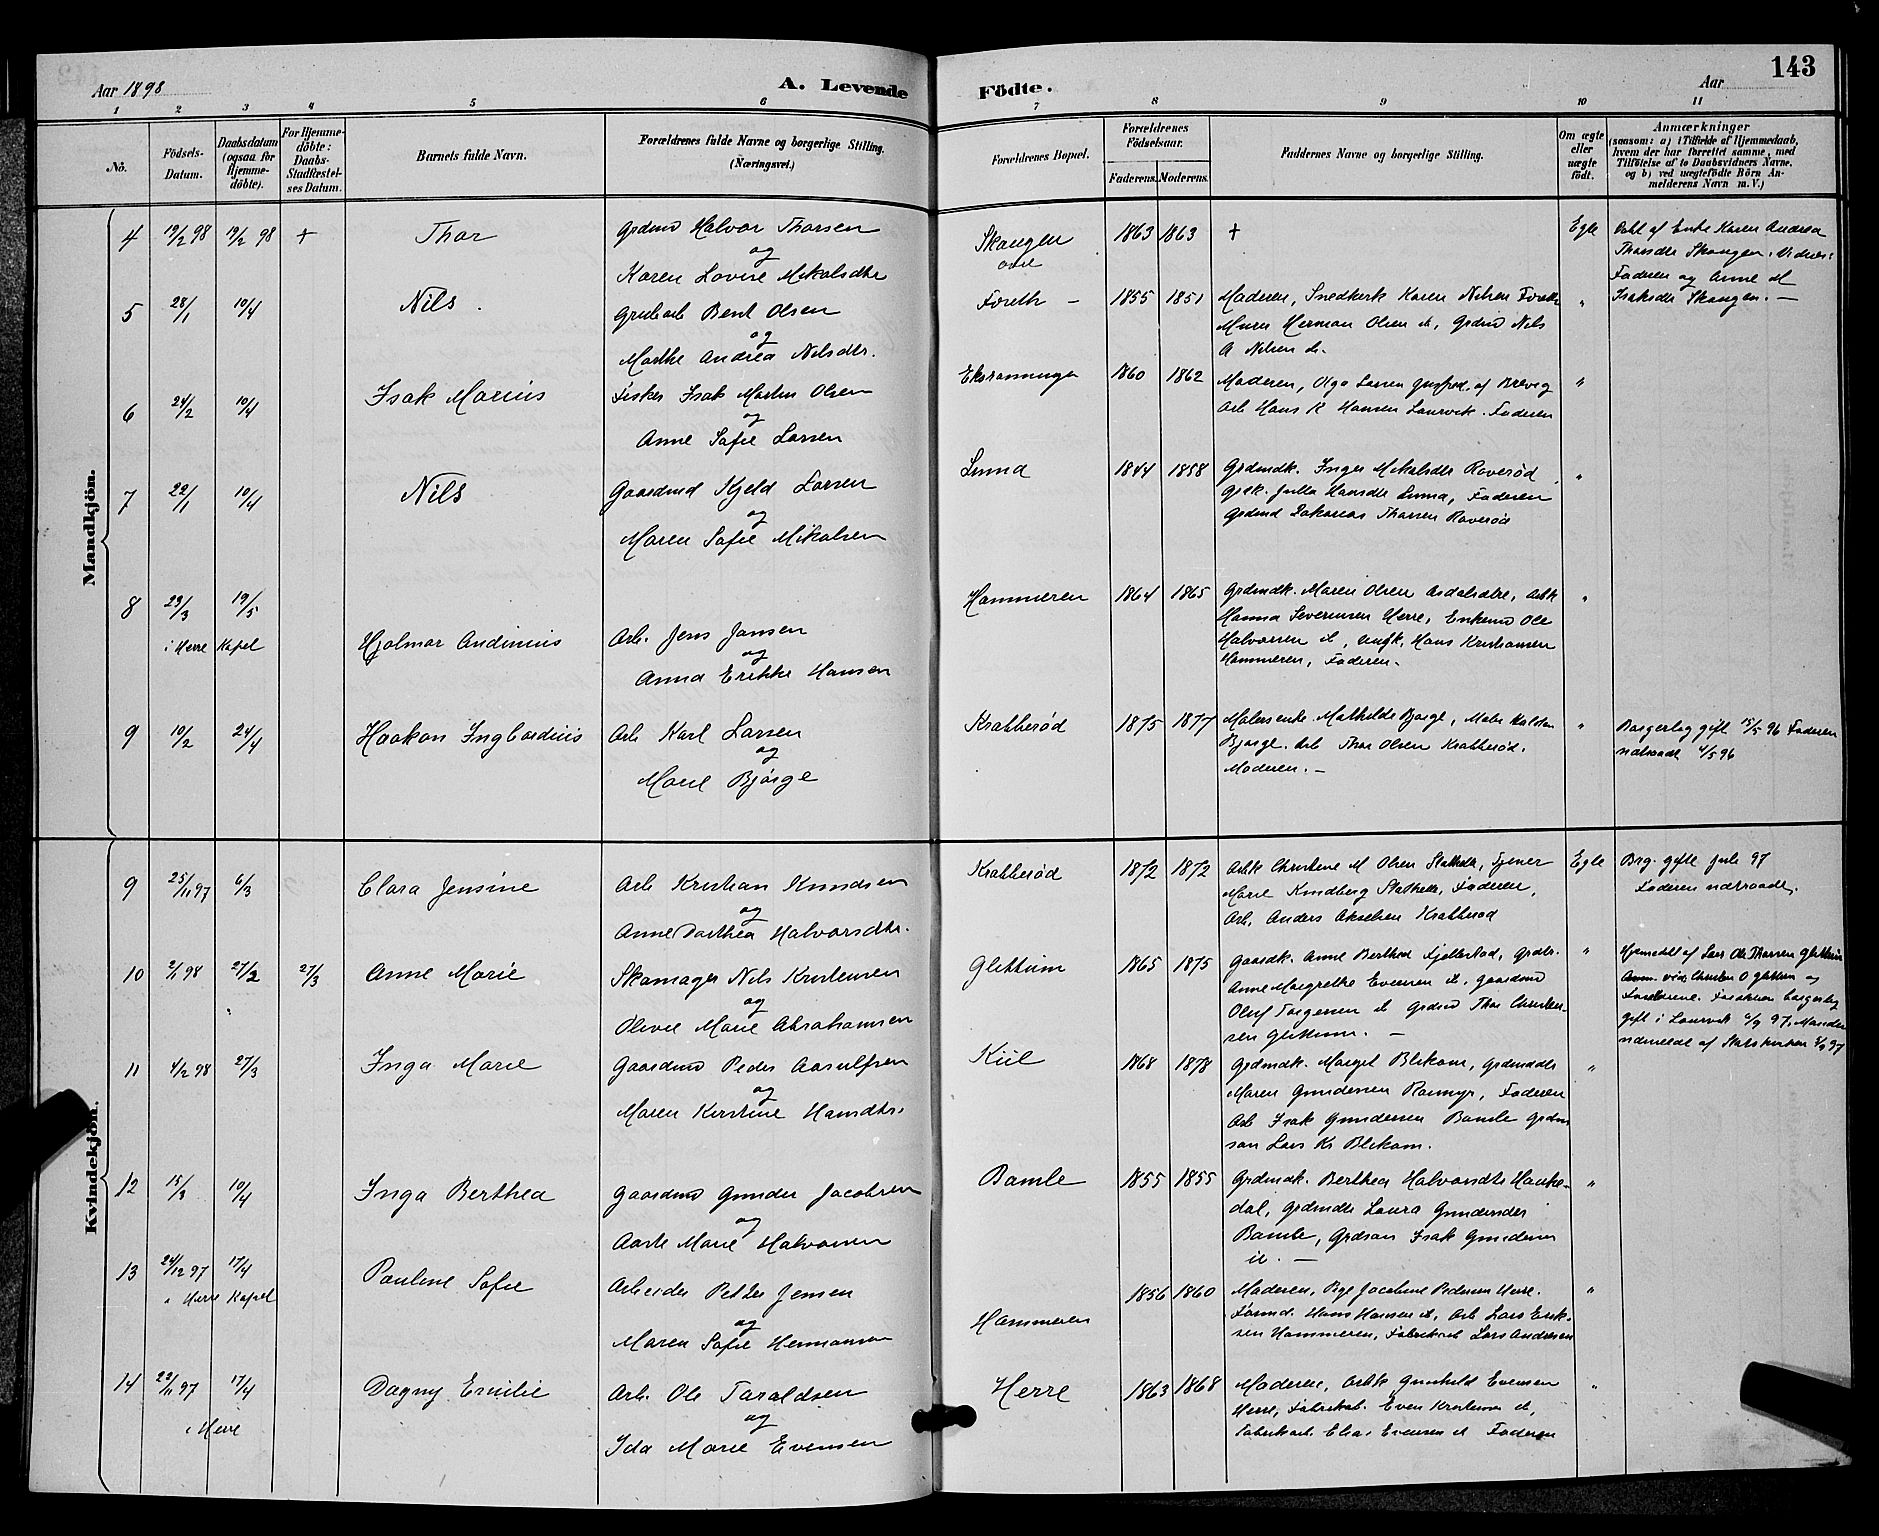 143
Aar 1898
A. Levende
Födte.
Aar
1 2 3 4 5 6 7 8 9 10 11
No.
Födsels-Datum.
Daabsdatum (ogsaa for Hjemme-döbte).
For Hjemme-döbte: Daabs-Stadfæstel-ses Datum.
Barnets fulde Navn.
Forældrenes fulde Navne og borgerlige Stilling. (Næringsvei.)
Forældrenes Bopæl.
Forældrenes Födselsaar.
Faderens. Moderens.
Faddernes Navne og borgerlige Stilling.
Om ægte eller uægte födt.
Anmærkninger
(saasom: a) i Tilfælde af Hjemmedaab,
hvem der har forrettet samme, med
Tilföielse af to Daabsvidners Navne,
og b) ved uægtefödte Börn An-
melderens Navn m. V.)
Mandkjön.
4 19/2 98 19/2 98 + Thor
Grdmd Halvor Thorsen
og
Karen Lovise Mikalsdtr
Skougen
1863 1863 + Egte
Døbt af Enke Karen Andrea
Thorsdtr Skougen. Vidner:
Faderen og Anne M
Isaksdtr Skougen. —
5 28/1 10/4 Nils.
Grubarb Bent Olsen
og
Marthe Andrea Nilsdtr.
Foreth — 1855 1851
Moderen, Snedkerk Karen Nilsen
Murer Herman Olsen it, Grdmd Nils
A Nilsen it. "
6 24/2 10/4 Isak Marius
Fisker Isak Martin Olsen
og
Anne Sofie Larsen
1860 1862
Moderen, Olga Larsen af Brevig
Arb Hans R Hansen Laurvik. Faderen "
7 22/1 10/4 Nils
Gaardmd Kjeld Larsen
og
Maren Sofie Mikalsen
Lunna 1844 1858
Grdmdk. Inger Mikalsdtr Roverød,
Julla Hansdtr Lunna, Faderen
Grdmd Zakarias Thorsen Roverød "
8 23/3 19/5
i Herre Kapel
Hjalmar Andinius
Arb. Jens Jansen
og
Anna Erikke Hansen
Hammeren 1864 1865
Grdmdk. Maren Olsen Asdalsdtre, Arbk
Hanna Severinsen Herre, Enkemd Ole
Halvorsen it, Ungk. Hans Kristiansen
Hammeren, Faderen. "
9 10/2 24/4 Haakon Ingbardius
Arb Karl Larsen
og
Marie Bjørge
Krabberød 1875 1877
Malersenke Mathilde Bjørge, Maler Halstan
Bjørge. Arb Thor Olsen Krabberød.
Moderen. — "
Borgerlig gift 15/5 96 Faderen
udtraadt 4/5 96
Kvindekjön.
9 25/11 97 6/3 Clara Jensine
Arb Kristian Knudsen
og
Anne Dorthea Halvorsdtr.
Krabberød 1872 1872
Arbk Christine M Olsen Stathelle, Tjener
Marie Kindberg Stathelle, Faderen,
Arb. Anders Akselsen Krabberød
Egte
Brg. gifte Juli 97
Faderen udtraadt.
10 2/1 98 27/2 27/3 Anne Marie
Skomager Nils Kristensen
og
Olivie Marie Abrahamsen
Glittum 1865 1875
Gaardk. Anne Berthea Fjellestad, Grdtr.
Anne Margrethe Evensen it, Gaardmd
Oluf Torgersen it Grdmd Thor Christen-
sen Glittum. — "
Hjemmedøbt af Lars Ole Thorsen Glittum
vid. Christen O Glittum og
Forældrene. Forældrene borgerlig
gift i Laurvik 97. Manden
udmeldt af Statskirken 97
11 4/2 98 27/3 Inga Marie
Gaardmd Peder Aasulfsen
og
Maren Kirstine Hansdtr.
Kiil 1868 1878
Grdmdk. Marget Blekom, Grdmdtr
Maren Gundersen Rønningen, Faderen
Arb Isak Gundersen Bamle Grdm
søn Lars Kr Blekom. "
12 15/3 10/4 Inga Berthea
Gaardmd Gunder Jacobsen
og
Aaste Marie Halvorsen
Bamle 1855 1855
Grdmdk. Berthea Halvorsdtr Hauke-
dal, Grdmdtr Laura Gundersdtr
Bamle, Grdsøn Isak Gundersen
it. — "
13 24/12 97 17/4
i Herre Kapel
Pauline Sofie
Arbeider Petter Jensen
og
Maren Sofie Hermansen
Hammeren 1856 1860
Moderen, Pige Jacobine Pedersen Herre.
Hans Hansen it, Arb Lars Erik-
sen Hammeren, Fabrikarb Lars Andresen "
14 22/11 97 17/4
i Herre
Dagny Emilie
Arb. Ole Taraldsen
og
Ida Marie Evensen
Herre 1863 1868
Moderen, Arbk Gunhild Evensen
Herre, Fabrikarb. Even Kristensen it,
Fabrikarb. Elias Evensen it Faderen "